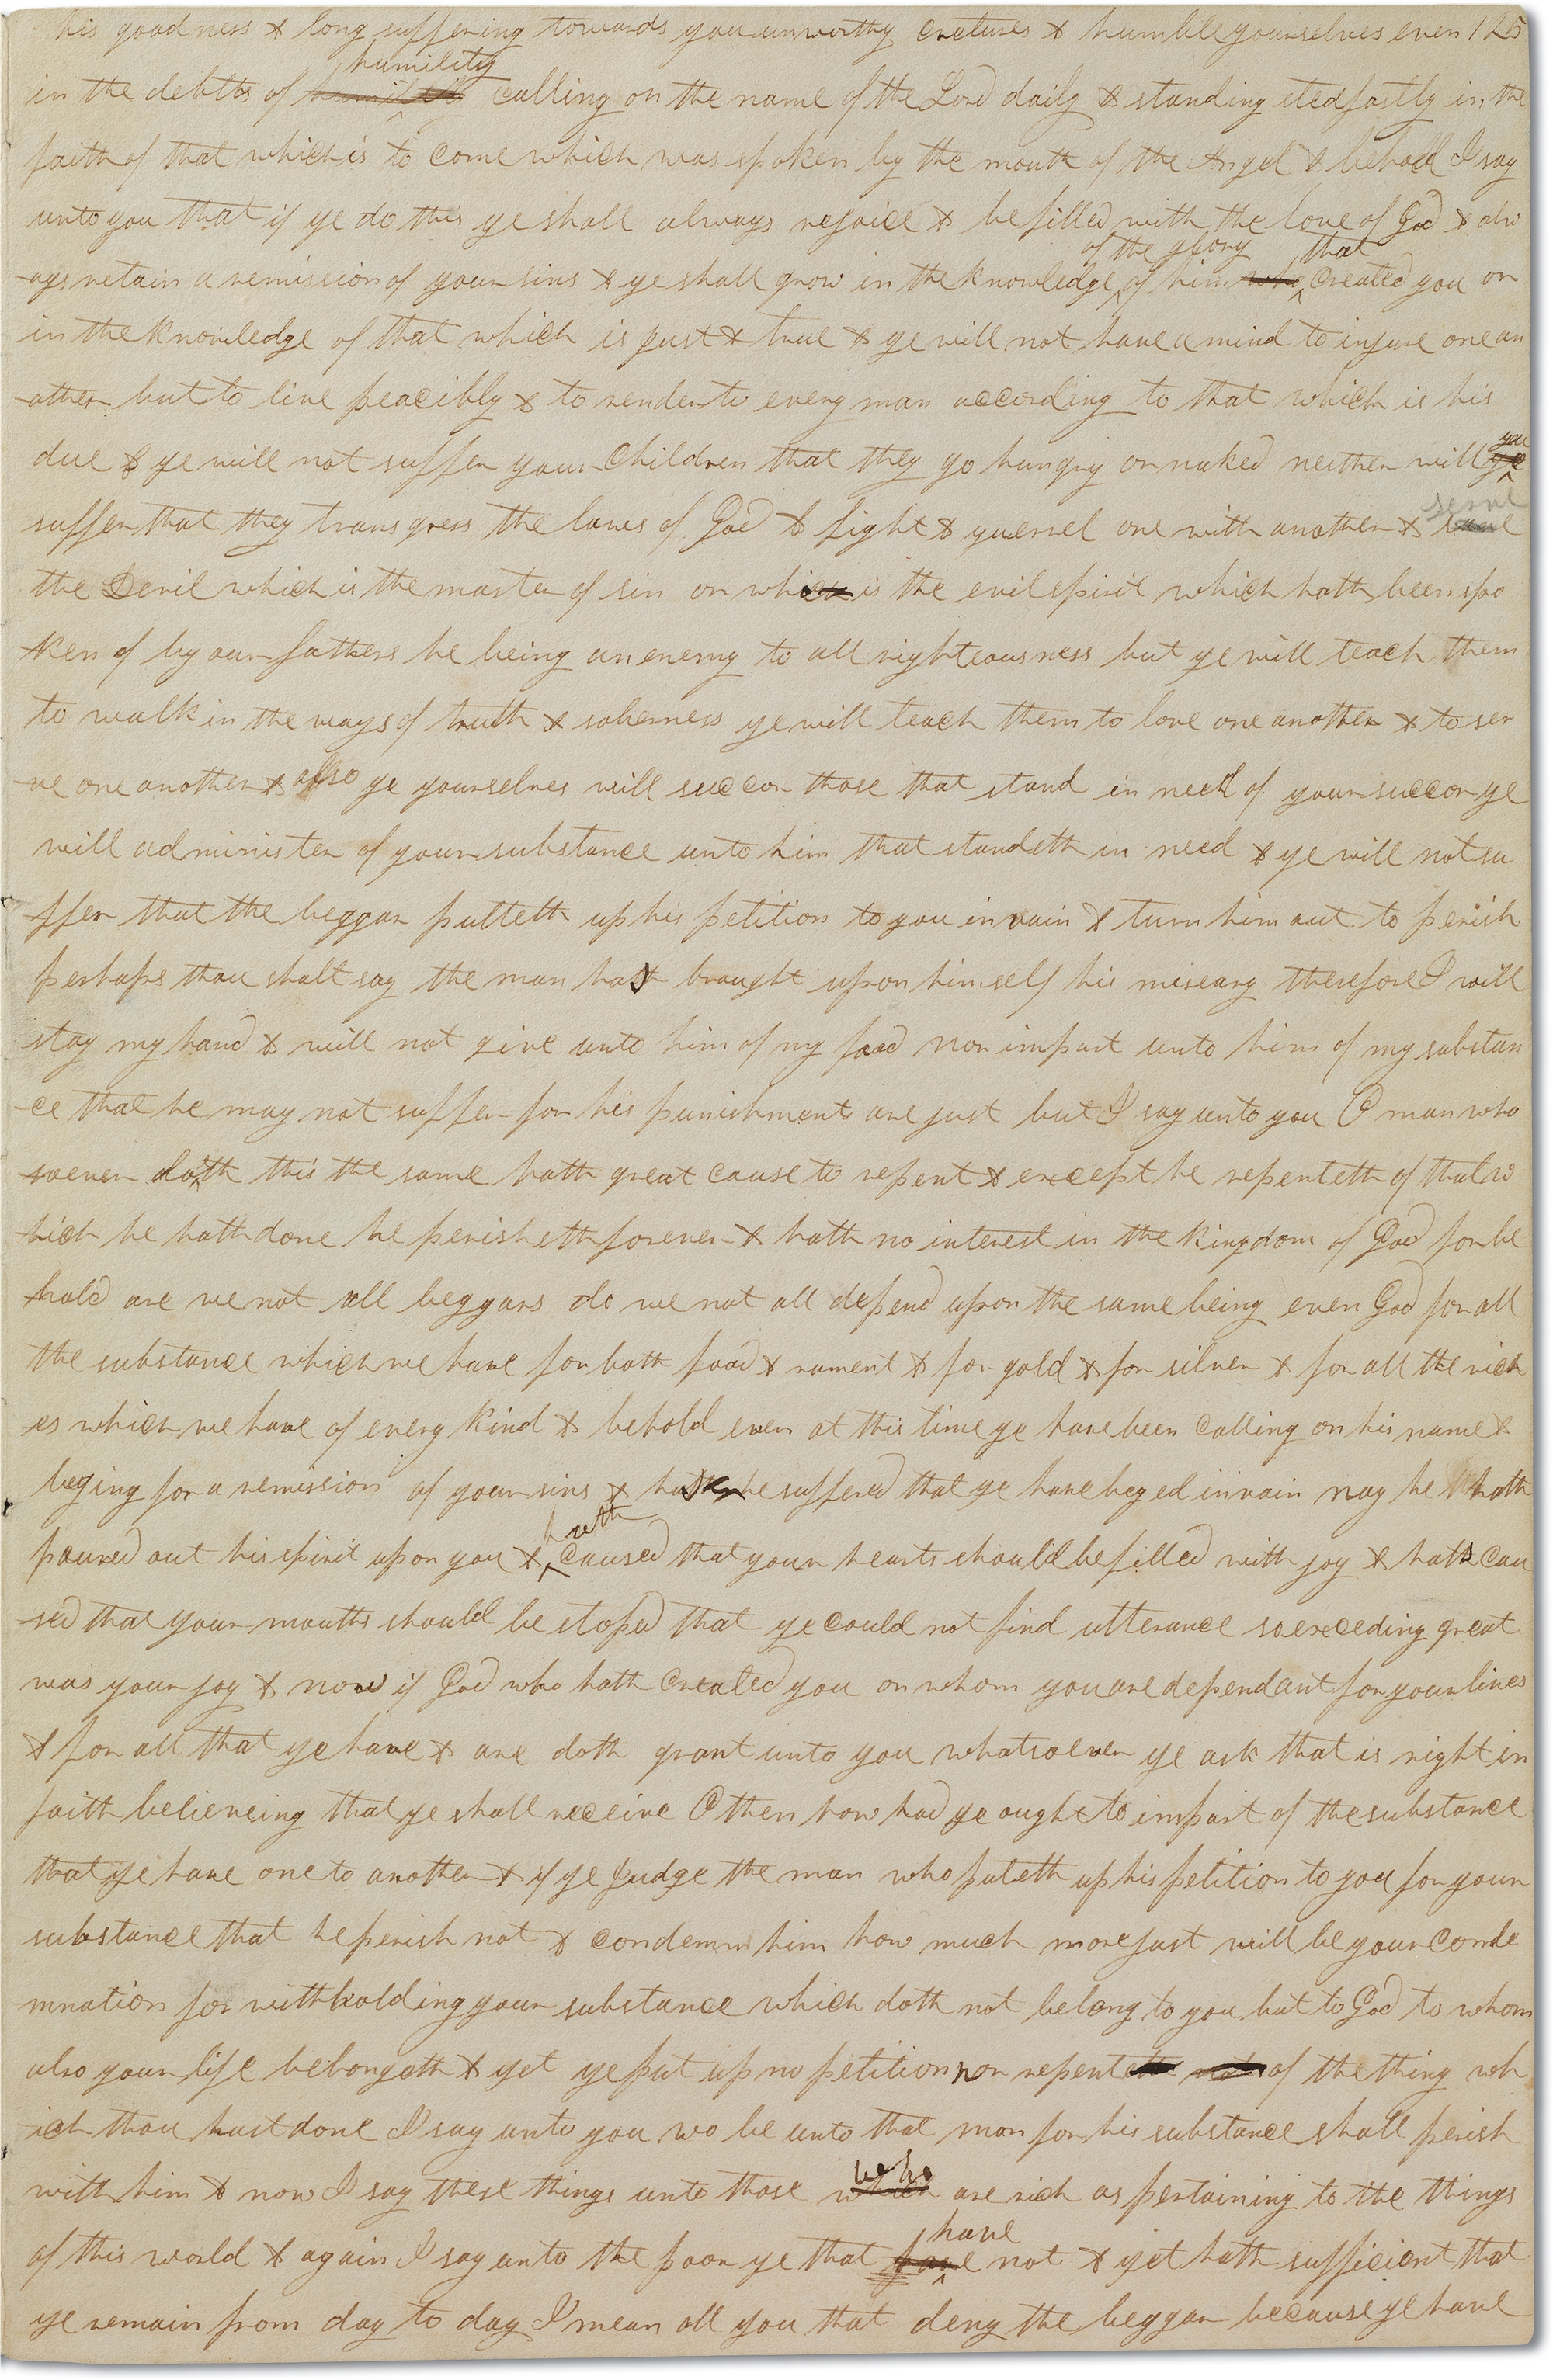 his goodness & long suffering towards you unworthy cretures & humble yourselves even 125
in the debths of humility humility calling on the name of the Lord daily & standing stedfastly in the
faith of that which is to come which was spoken by the mouth of the Angel & behold I say
unto you that if ye do this ye shall always rejoice & be filled with the love of God & alw
-ays retain a remission of your sins & ye shall grow in the knowledge of the glory of him who that created you or
in the knowledge of that which is just & true & ye will not have a mind to injure one an
-other but to live peacibly & to render to every man according to that which is his
due & ye will not suffer your children that they go hungry or naked neither will ye ye
suffer that they transgress the laws of God & fight & querrel one with another & serve
the Devil which is the master of sin or which is the evil spirit which hath been spo
-ken of by our fathers he being an enemy to all righteousness but ye will teach them
to walk in the ways of truth & soberness ye will teach them to love one another & to ser
-ve one another & also ye yourselves will succor those that stand in need of your succor ye
will administer of your substance unto him that standeth in need & ye will not su
-ffer that the beggar putteth up his petition to you in vain & turn him out to perish
perhaps thou shalt say the man has brought upon himself his miseary therefore I will
stay my hand & will not give unto him of my food nor impart unto him of my substan
-ce that he may not suffer for his punishments are just but I say unto you O man who
-soever doth this the same hath great cause to repent & except he repenteth of that w
-hich he hath done he perisheth forever & hath no interest in the kingdom of God for be
-hold are we not all beggars do we not all depend upon the same being even God for all
the substance which we have for both food & rament & for gold & for silver & for all the rich
-es which we have of every kind & behold even at this time ye have been calling on his name &
beging for a remission of your sins & has he suffered that ye have beged in vain nay he hath
poured out his spirit upon you & hath caused that your hearts should be filled with joy & hath cau
-sed that your mouths should be stoped that ye could not find utterance so exceding great
was your joy & now if God who hath created you on whom you are dependant for your lives
& for all that ye have & are doth grant unto you whatsoever ye ask that is right in
faith believeing that ye shall receive O then how had ye ought to impart of the substance
that ye have one to another & if ye judge the man who puteth up his petition to you for your
substance that he perish not & condemn him how much more just will be your conde
-mnation for withholding your substance which doth not belong to you but to God to whom
also your life belongeth & yet ye put up no petition nor repenteth not of the thing wh
-ich thou hast done I say unto you wo be unto that man for his substance shall perish
with him & now I say these things unto those which who are rich as pertaining to the things
of this world & again I say unto the poor ye that have have not & yet hath sufficient that
ye remain from day to day I mean all you that deny the beggar because ye have